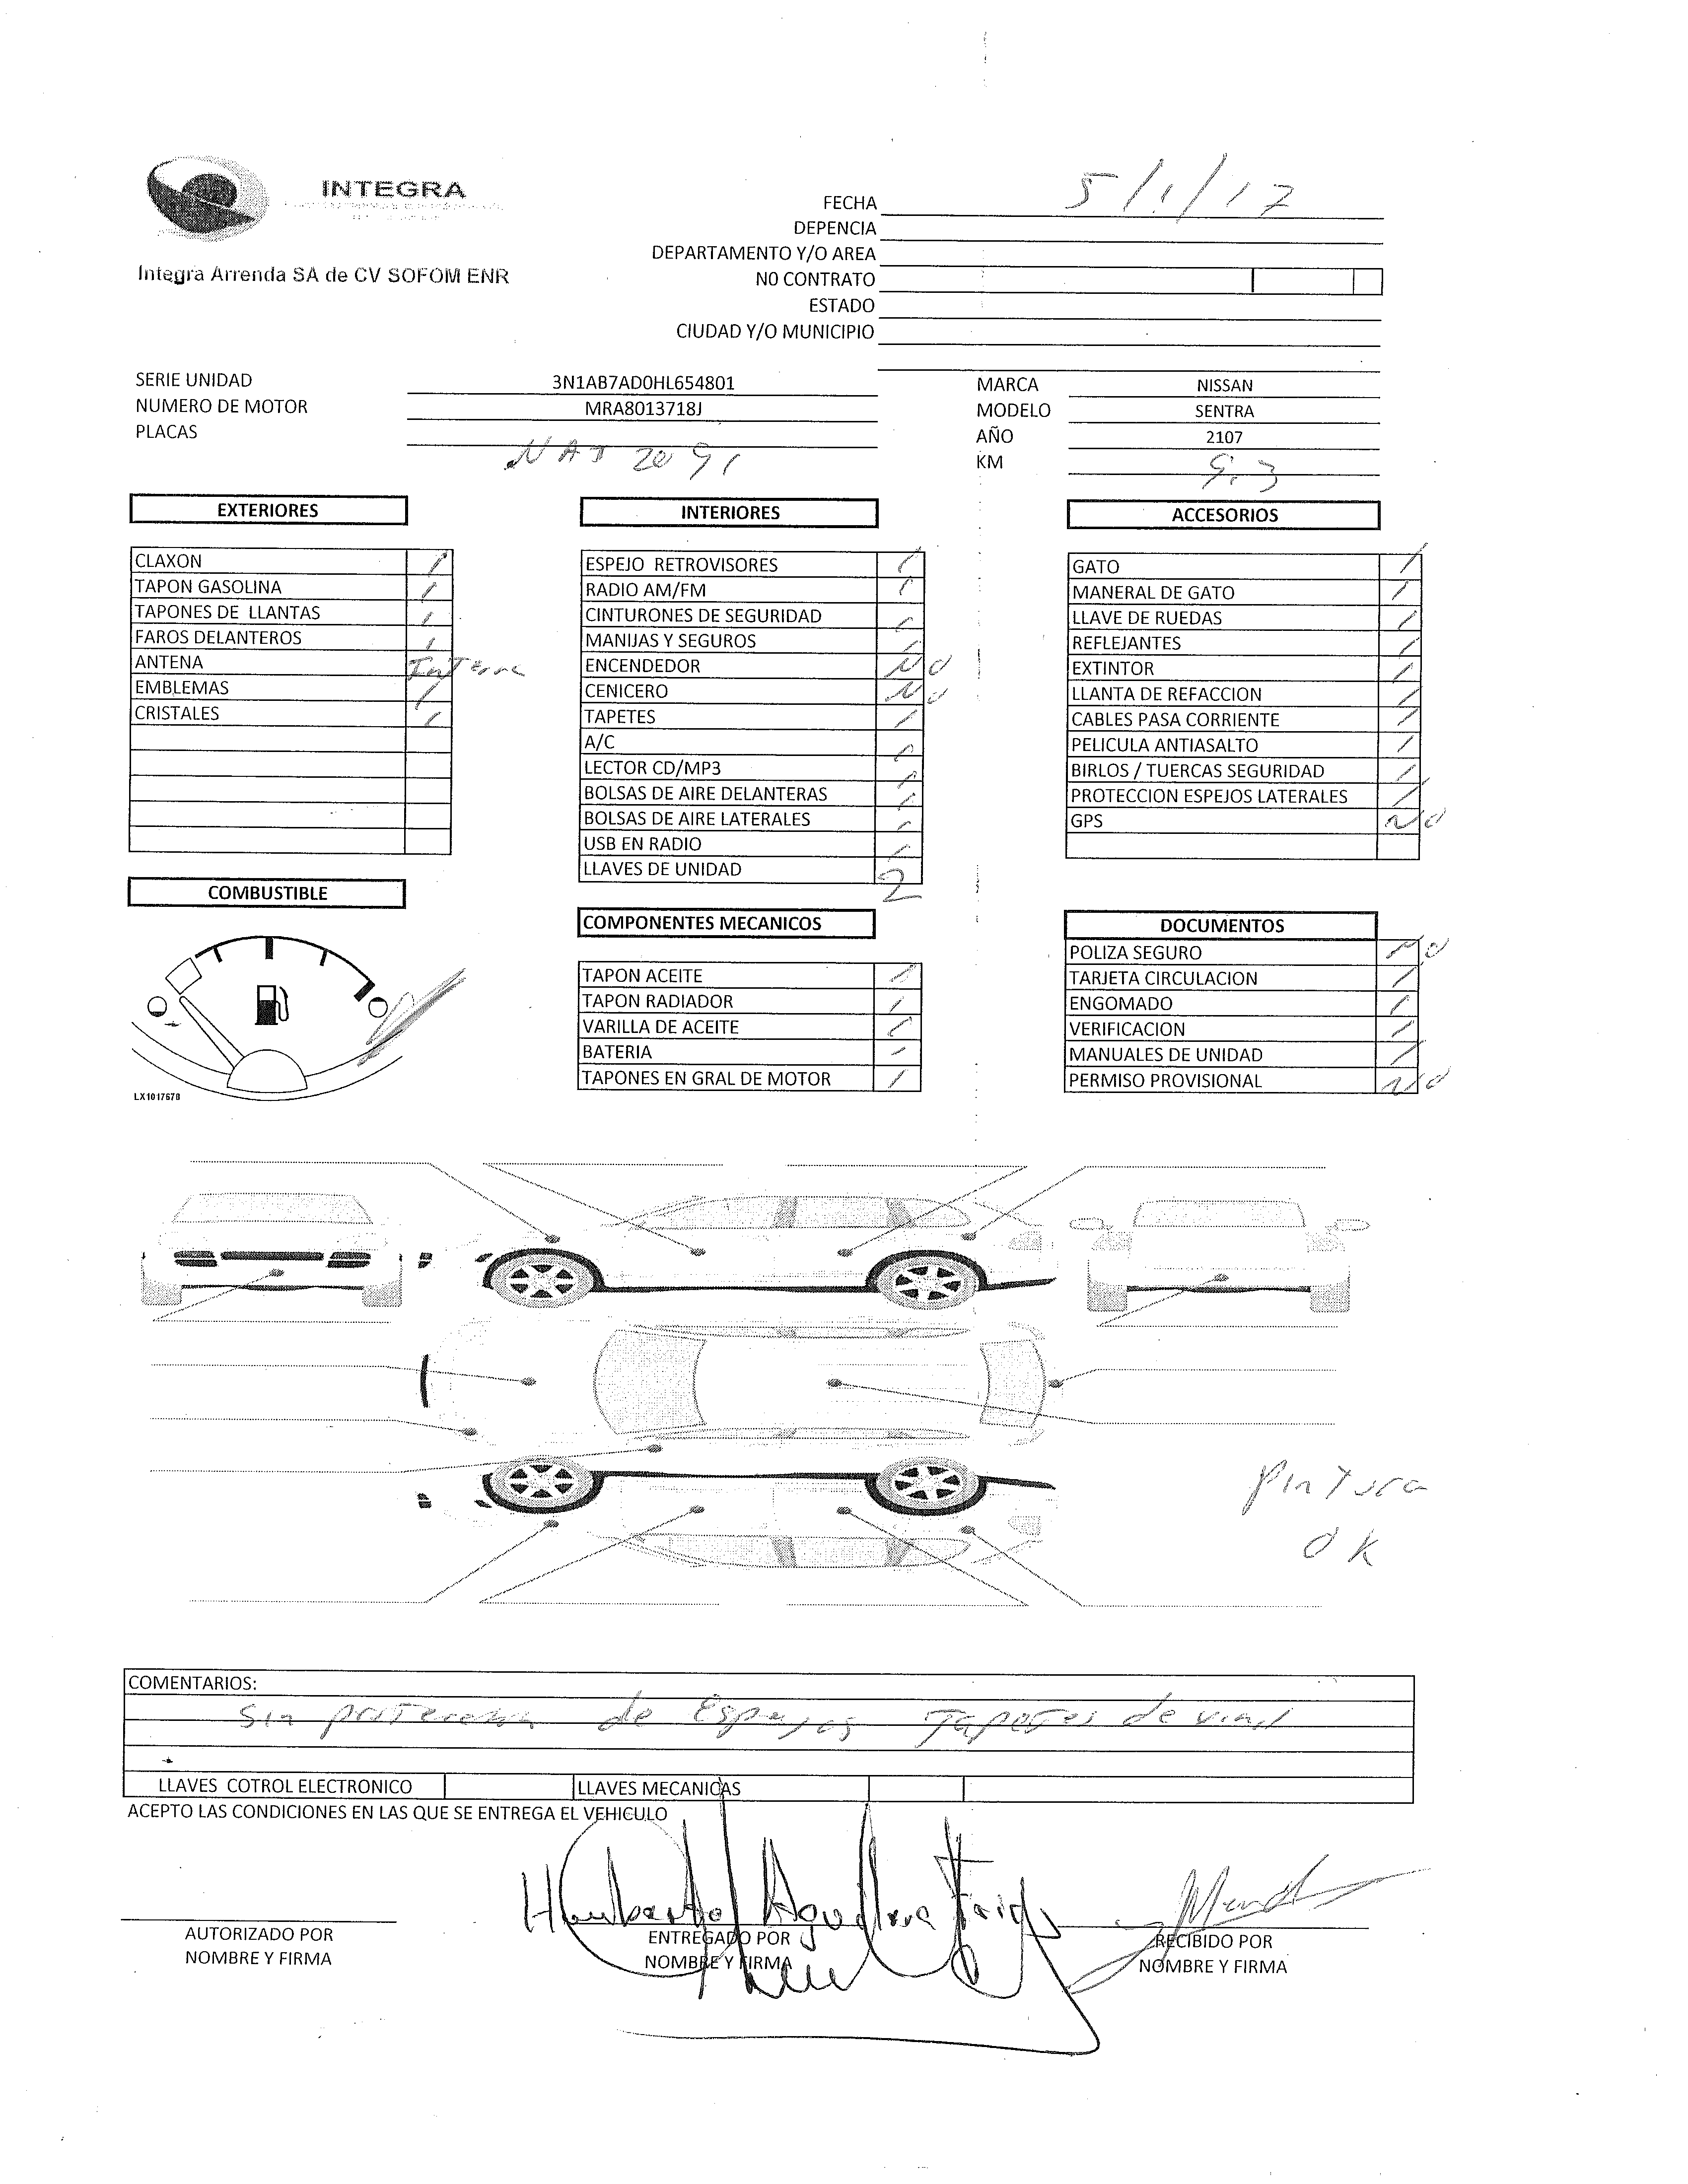 INTEGRA
Integra Arrenda SA de CV SOFOM ENR
FECHA 5/1/17
DEPENCIA
DEPARTAMENTO Y/O AREA
N0 CONTRATO
ESTADO
CIUDAD Y/O MUNICIPIO
SERIE UNIDAD 3N1AB7AD0HL654801
NUMERO DE MOTOR MRA8013718J
PLACAS
MARCA NISSAN
MODELO SENTRA
AÑO 2107
KM 9.3
EXTERIORES
CLAXON /
TAPON GASOLINA /
TAPONES DE LLANTAS /
FAROS DELANTEROS /
ANTENA
EMBLEMAS /
CRISTALES /
COMBUSTIBLE
LX1017678
INTERIORES
ESPEJO RETROVISORES /
RADIO AM/FM /
CINTURONES DE SEGURIDAD /
MANIJAS Y SEGUROS /
ENCENDEDOR NO
CENICERO NO
TAPETES /
A/C /
LECTOR CD/MP3 /
BOLSAS DE AIRE DELANTERAS /
BOLSAS DE AIRE LATERALES /
USB EN RADIO /
LLAVES DE UNIDAD 2
COMPONENTES MECANICOS
TAPON ACEITE /
TAPON RADIADOR /
VARILLA DE ACEITE /
BATERIA /
TAPONES EN GRAL DE MOTOR /
ACCESORIOS
GATO /
MANERAL DE GATO /
LLAVE DE RUEDAS /
REFLEJANTES /
EXTINTOR /
LLANTA DE REFACCION /
CABLES PASA CORRIENTE /
PELICULA ANTIASALTO /
BIRLOS / TUERCAS SEGURIDAD /
PROTECCION ESPEJOS LATERALES /
GPS NO
DOCUMENTOS
POLIZA SEGURO NO
TARJETA CIRCULACION /
ENGOMADO /
VERIFICACION /
MANUALES DE UNIDAD /
PERMISO PROVISIONAL NO
Pintura
OK
COMENTARIOS:
Sin de Espejos Tapetes de vinil
LLAVES COTROL ELECTRONICO
LLAVES MECANICAS
ACEPTO LAS CONDICIONES EN LAS QUE SE ENTREGA EL VEHICULO
Humberto Aguilera
AUTORIZADO POR
NOMBRE Y FIRMA
ENTREGADO POR
NOMBRE Y FIRMA
RECIBIDO POR
NOMBRE Y FIRMA